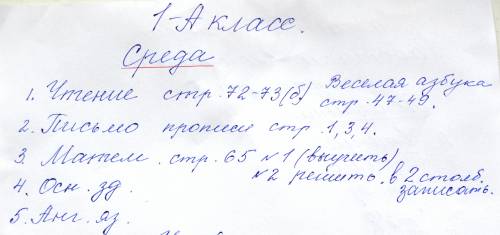 1-А класс.
Среда
1. Чтение стр. 72-73(б) Веселая азбука
стр. 47-49.
2. Письмо прописи стр. 1,3,4.
3. Матем. стр. 65 №1 (выучить)
№2 решить. в 2 столб.
записать.
4. Осн. зд.
5. Анг. яз.